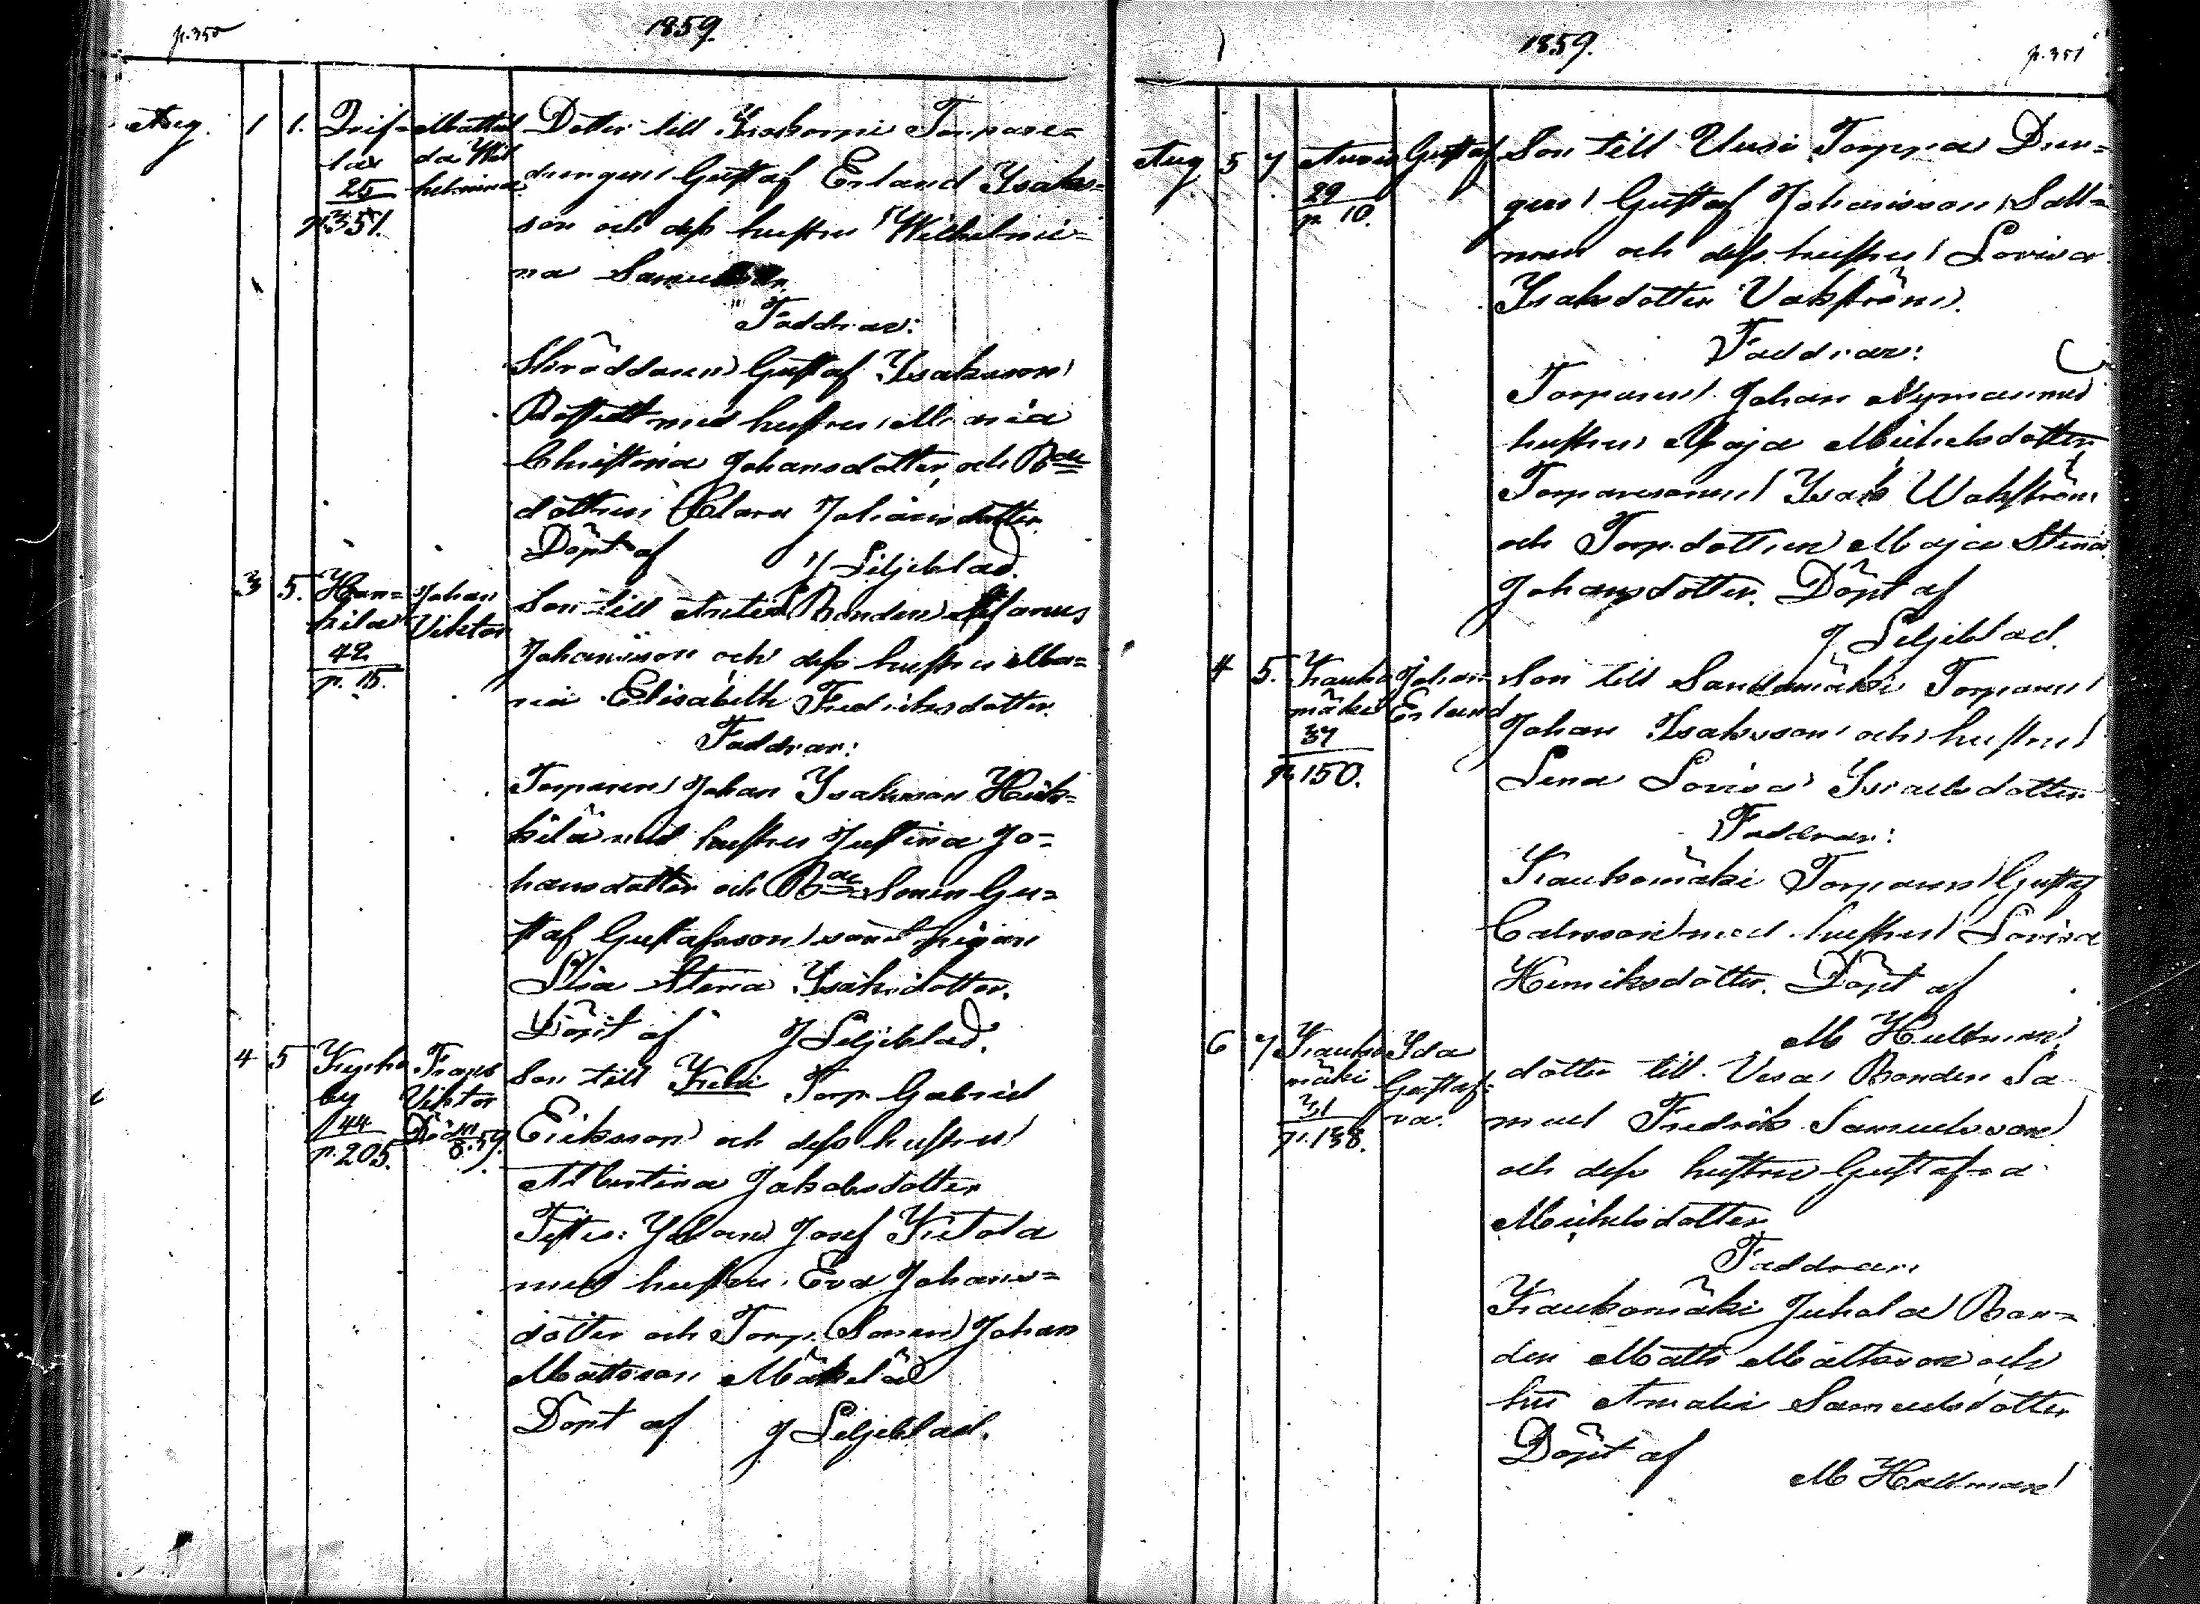 p. 350
1859.
Aug. 1 1. Mathil
lax da Wil
25 helmina
p. 351.
Dotter till Torpare=
drängen Gustaf Erland Isaks=
son och dess hustru Wilhelmi=
na
Faddrar:
Skräddaren Gustaf Isaksson
med hustru Maria
Christina Johansdotter, och Bde
dottren Clara Johansdotter.
Döpt af J Liljeblad.
3 5. Johan
kila Viktor
42
p. 15.
Son till Anttila Bonden
Johansson och dess hustru Ma=
ria Elisabeth Fredriksdotter.
Faddrar:
Torparen Johan Isaksson Heik=
kilä med hustru Justina Jo=
hansdotter och Bde Sonen Gu=
staf Gustafsson samt pigan
Lisa Stina Isaksdotter.
Döpt af J Liljeblad.
4 5 Frans
by Viktor
44 Död
p. 205. 8.59.
Son till Torp. Gabriel
Eriksson och dess hustru
Albertina Jakobsdotter
Testes: Josef Kietola
med hustru Eva Johans=
dotter och Torp. Sonen Johan
Mattsson Mäkelä
Döpt af J Liljeblad.
1859.
p. 351
Aug 5 7 Gustaf
29
p. 10.
Son till Uusi Torppa Drän=
gen Gustaf Johansson Sall=
men och dess hustru Lovisa
Isaksdotter Vakström.
Faddrar:
Torparen Johan Nyman med
hustru Maja Michelsdotter,
Torparesonen Isak Wakström
och Torp.dottren Maja Stina
Johansdotter. Döpt af
J Liljeblad.
4 5. Kauko Johan
mäki Erland
37
p. 150.
Son till Sandamäki Torparen
Johan Isaksson och hustru
Lena Lovisa Israelsdotter
Faddrar:
Kaukomäki Torparen Gustaf
Carlsson med hustru Lovisa
Henriksdotter. Döpt af
M Hultman
6 7 Kauko Ida
mäki Gustaf=
31 va.
p. 138.
dotter till Vesa Bonden Sa
muel Fredrik Samuelsson
och dess hustru Gustafva
Michelsdotter
Faddrar:
Kaukomäki Juhola Bon=
den Matts Mattsson och
hu Amalia Samuelsdotter
Döpt af
M Hultman